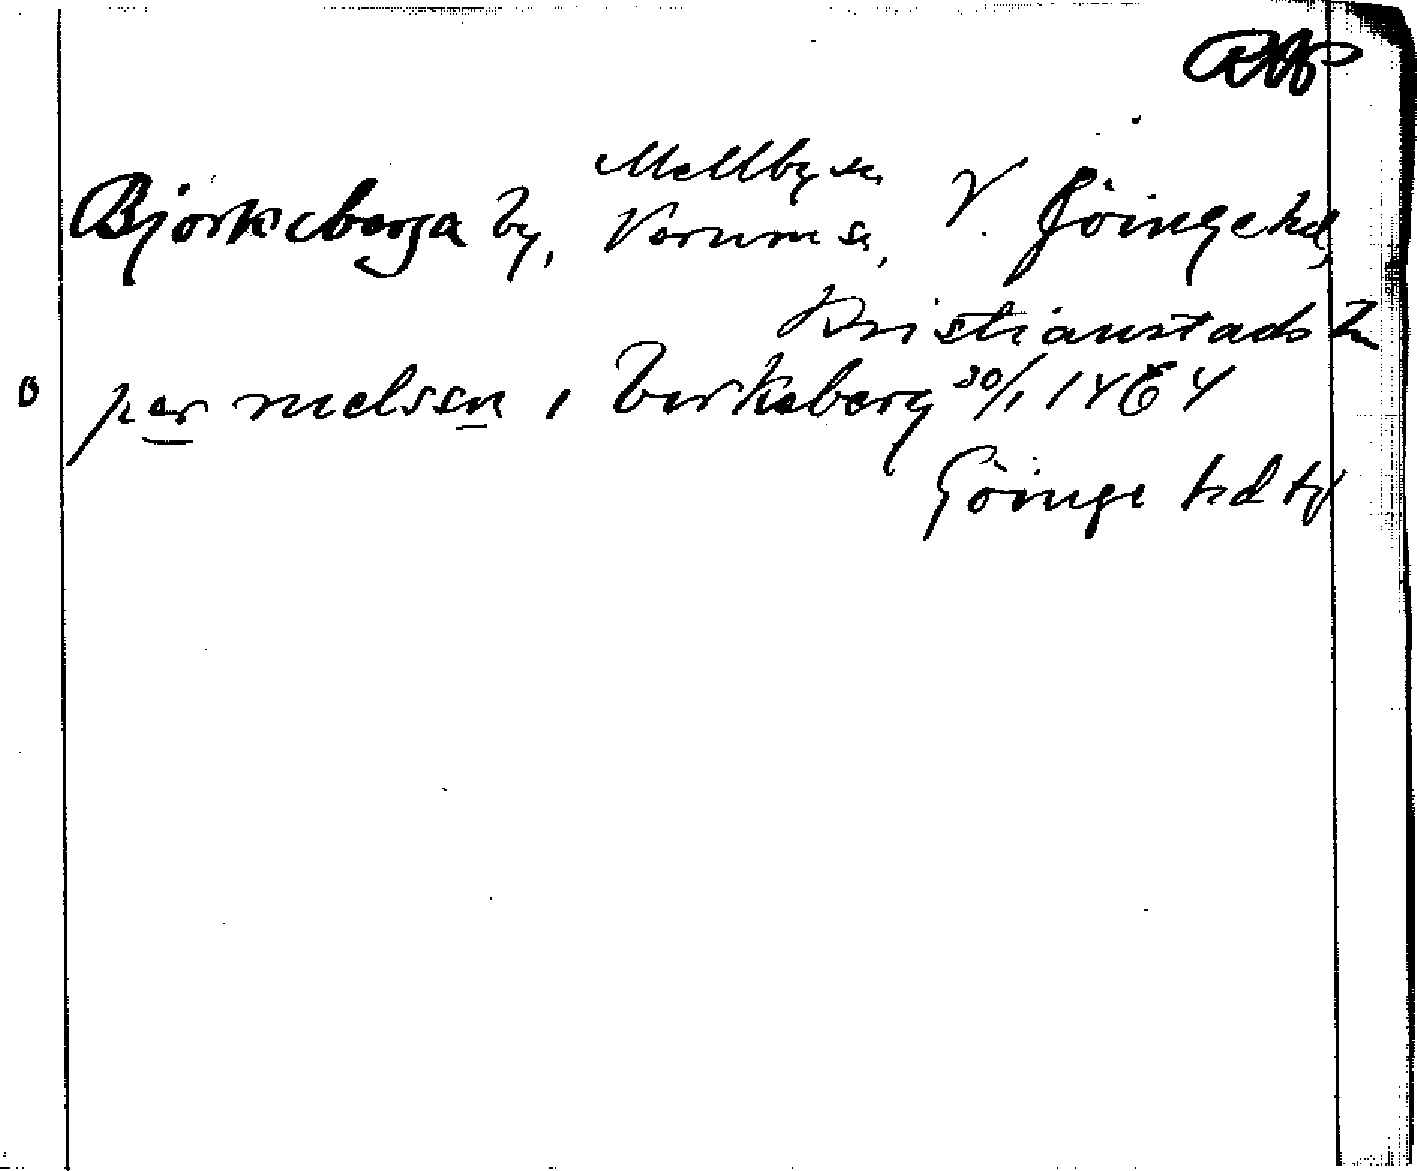 Mellby sn
Björkeberga by, Verum sn, V. Göingehd,
Kristianstads l
0 per nielssen i birkeberg 30/1 1484
Göinge hd tf